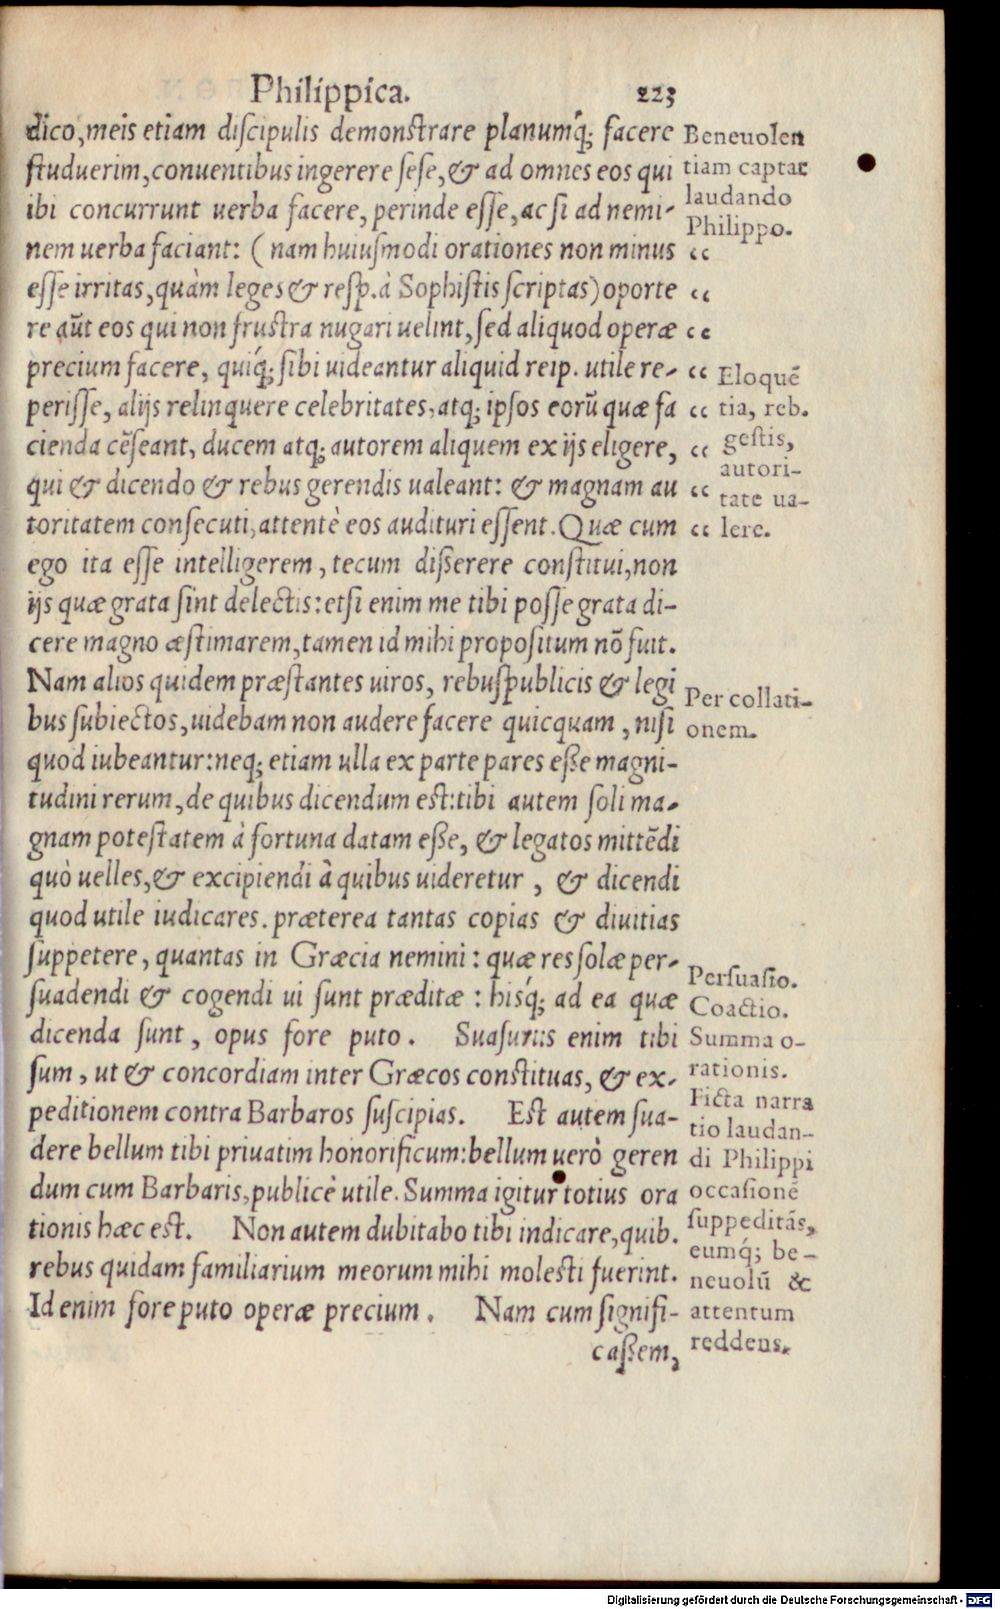 Philippica. 223
dico, meis etiam discipulis demonstrare planumq́; facere
studuerim, conuentibus ingerere sese, & ad omnes eos qui
ibi concurrunt uerba facere, perinde esse, ac si ad nemi-
nem uerba faciant: (nam huiusmodi orationes non minus
esse irritas, quàm leges & resp. à Sophistis scriptas) oporte
re aūt eos qui non frustra nugari uelint, sed aliquod operæ
precium facere, quiq́; sibi uideantur aliquid reip. utile re-
perisse, alijs relinquere celebritates, atq; ipsos eorū quæ fa
cienda cēseant, ducem atq; autorem aliquem ex ijs eligere,
qui & dicendo & rebus gerendis ualeant: & magnam au
toritatem consecuti, attentè eos audituri essent. Quæ cum
ego ita esse intelligerem, tecum disserere constitui, non
ijs quæ grata sint delectis: etsi enim me tibi posse grata di-
cere magno æstimarem, tamen id mihi propositum nō fuit.
Nam alios quidem præstantes uiros, rebuspublicis & legi
bus subiectos, uidebam non audere facere quicquam, nisi
quod iubeantur: neq; etiam ulla ex parte pares esse magni-
tudini rerum, de quibus dicendum est: tibi autem soli ma-
gnam potestatem à fortuna datam esse, & legatos mittēdi
quò uelles, & excipiendi à quibus uideretur, & dicendi
quod utile iudicares. præterea tantas copias & diuitias
suppetere, quantas in Græcia nemini: quæ res solæ per-
suadendi & cogendi ui sunt præditæ: hisq́; ad ea quæ
dicenda sunt, opus fore puto. Suasurus enim tibi
sum, ut & concordiam inter Græcos constituas, & ex-
peditionem contra Barbaros suscipias. Est autem sua-
dere bellum tibi priuatim honorificum: bellum uerò geren
dum cum Barbaris, publicè utile. Summa igitur totius ora
tionis hæc est. Non autem dubitabo tibi indicare, quib.
rebus quidam familiarium meorum mihi molesti fuerint.
Id enim fore puto operæ precium. Nam cum signifi-
cassem,
Beneuolen
tiam captat
laudando
Philippo.
‟
‟
‟
‟ Eloquē
‟ tia, reb.
‟ gestis,
autori-
‟ tate ua-
‟ lere.
Per collati-
onem.
Persuasio.
Coactio.
Summa o-
rationis.
Ficta narra
tio laudan-
di Philippi
occasionē
suppeditās,
eumq́; be-
neuolū &
attentum
reddens.
Digitalisierung gefördert durch die Deutsche Forschungsgemeinschaft - DFG